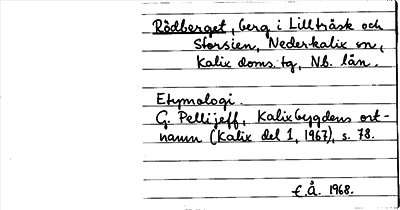 Rödberget, berg i Lillträsk och
Storsien, Nederkalix sn,
Kalix doms. tg, Nb. län.
Etymologi.
G. Pellijeff, Kalixbygdens ort-
namn (Kalix del 1, 1967), s. 78.
E.Å. 1968.